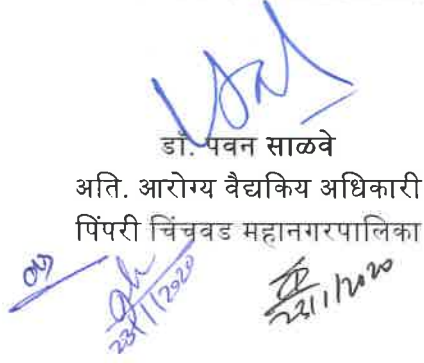 डॉ. पवन साळवे
अति. आरोग्य वैद्यकिय अधिकारी
पिंपरी चिंचवड महानगरपालिका
23/1/2020
22/1/2020